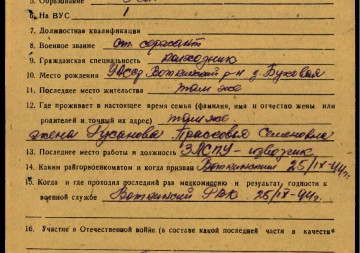 5. Образование
6. На ВУС 1
7. Должностная квалификация
8. Военное звание ст. сержант
9. Гражданская специальность колхозник
10. Место рождения УАССР Воткинский р-н д. Буковая
11. Последнее место жительства там же
12. Где проживает в настоящее время семья (фамилия, имя и отчество жены или
родителей и точный их адрес) там же
жена Русанова Прасковья Семеновна
13. Последнее место работы и должность
14. Каким райгорвоенкоматом и когда призван Воткинский 25/IX-44г.
15. Когда и где проходил последний раз медкомиссию и результат годности к
военной службе Воткинский РВК 25/IX-44г.
16. Участие в Отечественной войне (в составе какой последней части в качеств